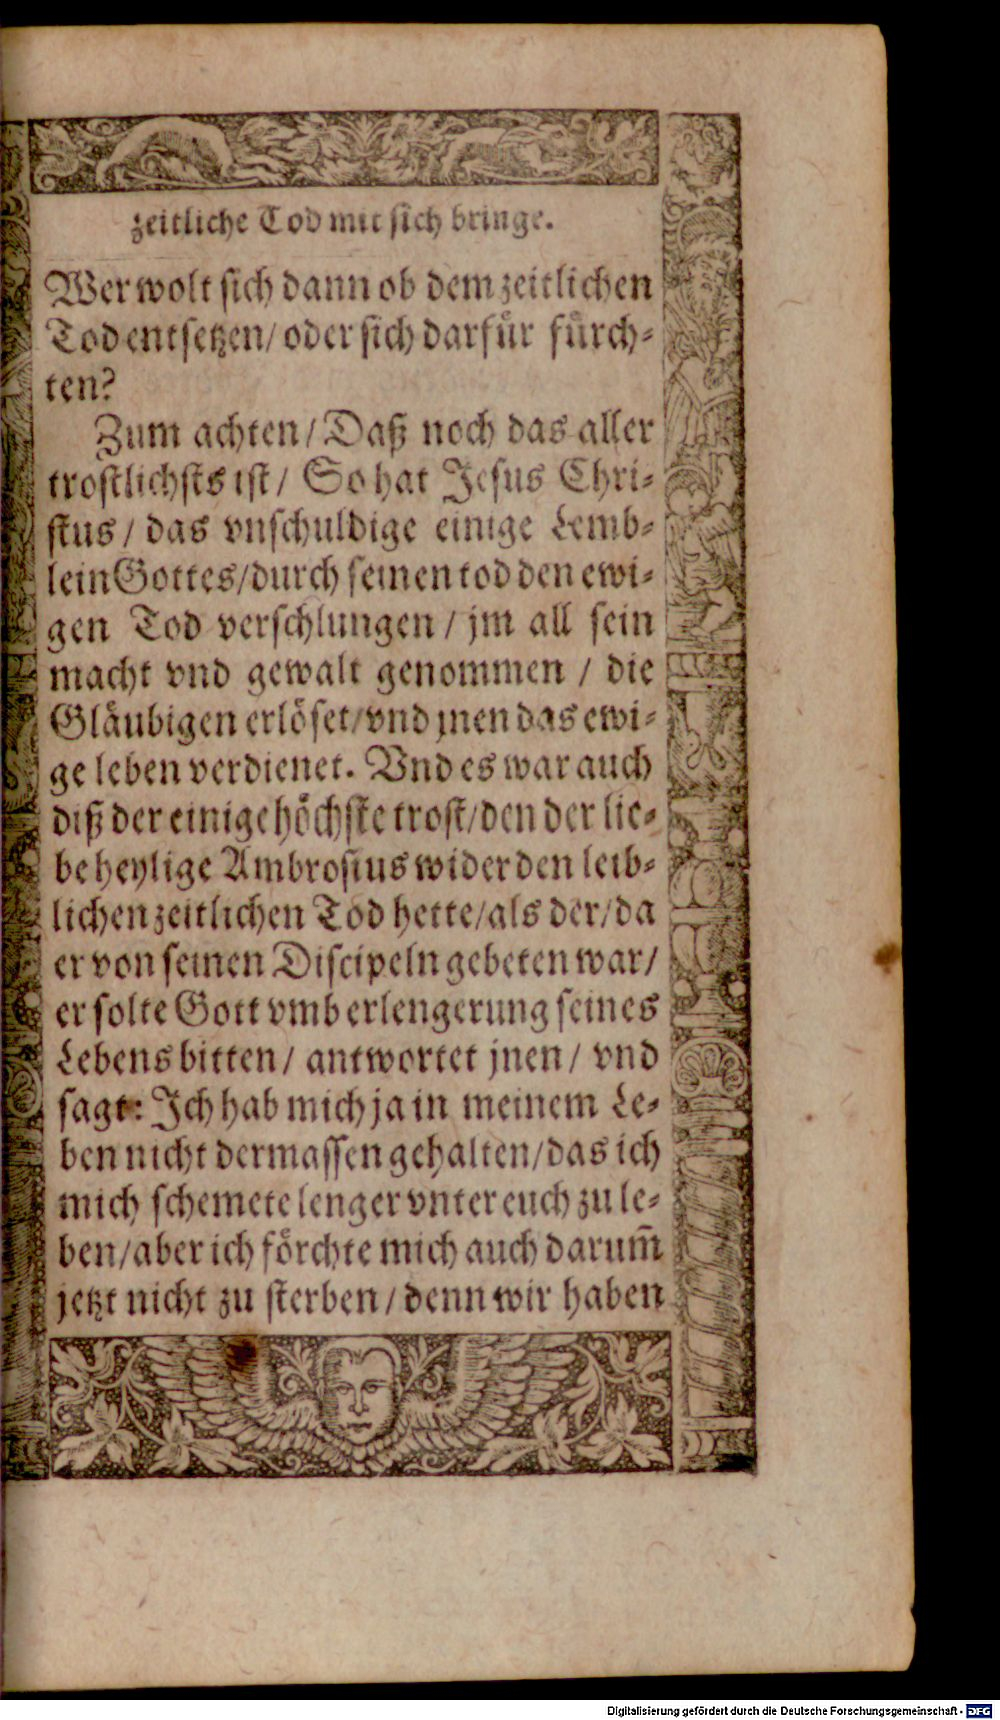 zeitliche Tod mit sich bringe.
Wer wolt sich dann ob dem zeitlichen
Tod entsetzen/ oder sich darfuͤr fuͤrch-
ten?
Zum achten/ Daß noch das aller
trostlichsts ist/ So hat Jesus Chri-
stus/ das vnschuldige einige Lemb-
lein Gottes/ durch seinen tod den ewi-
gen Tod verschlungen/ jm all sein
macht vnd gewalt genommen/ die
Glaͤubigen erloͤset/ vnd jnen das ewi-
ge leben verdienet. Vnd es war auch
diß der einige hoͤchste trost/ den der lie-
be heylige Ambrosius wider den leib-
lichen zeitlichen Tod hette/ als der/ da
er von seinen Discipeln gebeten war/
er solte Gott vmb erlengerung seines
Lebens bitten/ antwortet jnen/ vnd
sagt: Ich hab mich ja in meinem Le-
ben nicht dermassen gehalten/ das ich
mich schemete lenger vnter euch zu le-
ben/ aber ich foͤrchte mich auch darum̃
jetzt nicht zu sterben/ denn wir haben
Digitalisierung gefördert durch die Deutsche Forschungsgemeinschaft - DFG